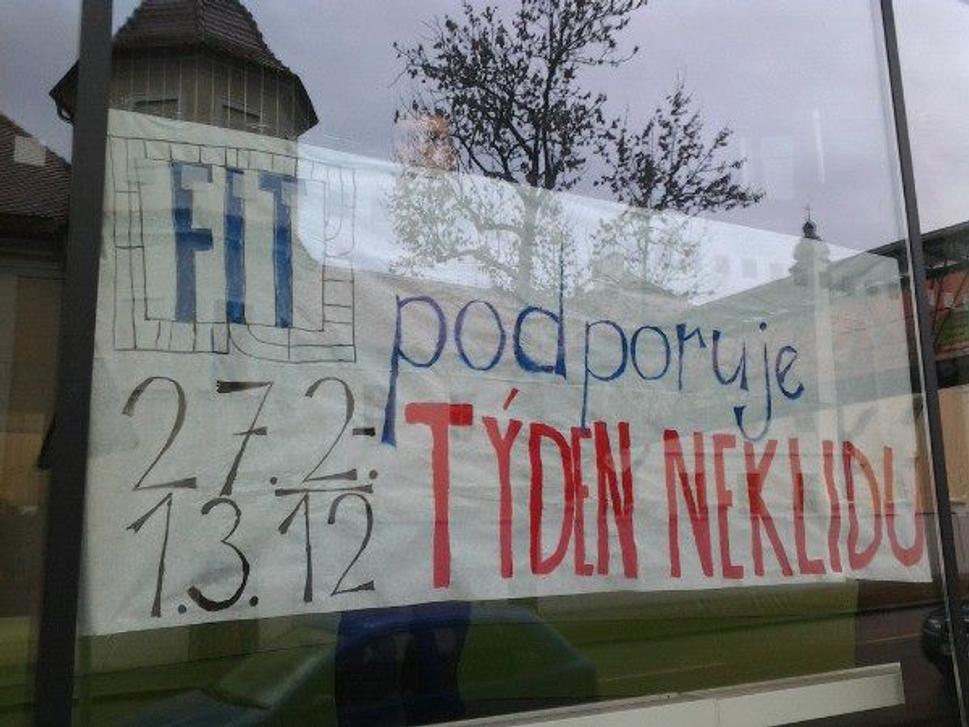 FIT
podporuje
27.2.-
1.3.12
TÝDEN NEKLIDU